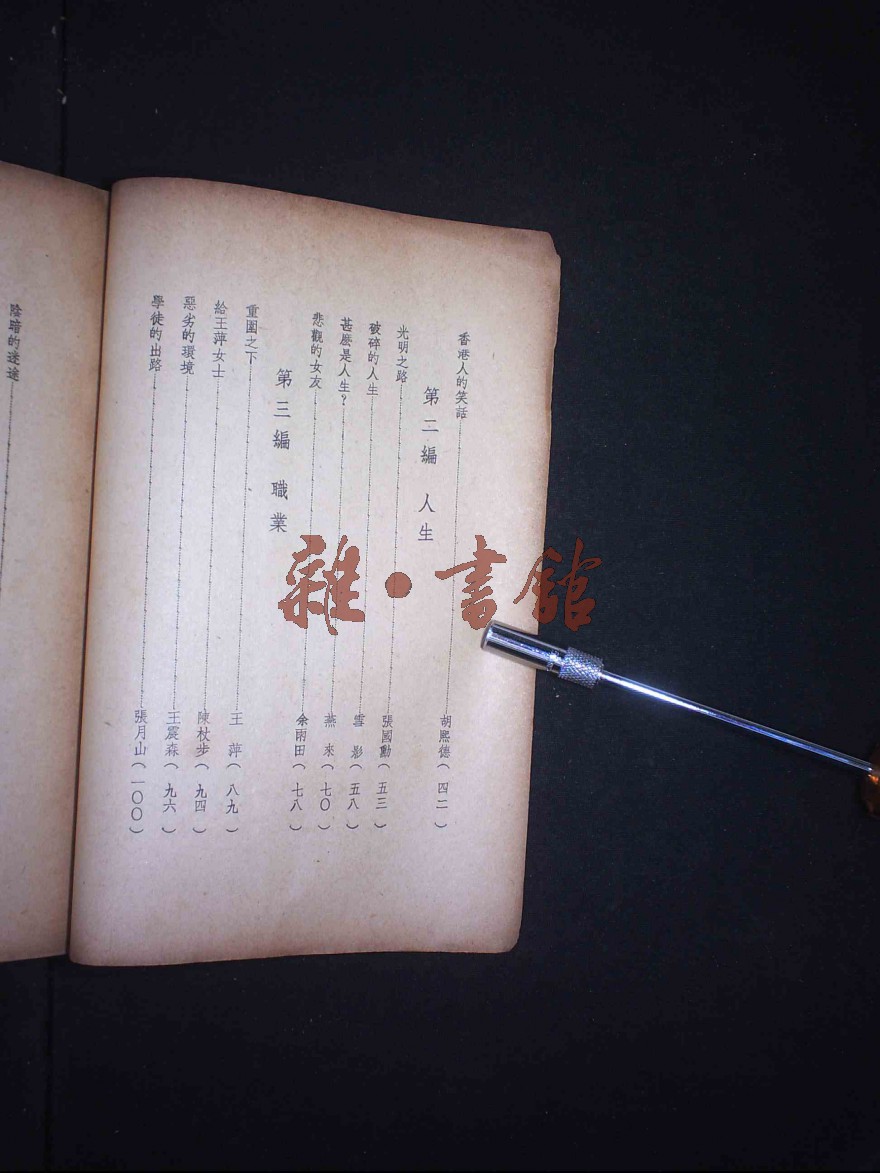 香港人的笑話 胡熙德（四二）
第二編 人生
光明之路 張國勳（五三）
破碎的人生 雪影（五八）
甚麽是人生？ 燕來（七〇）
悲觀的女友 余雨田（七八）
第三編 職業
重圍之下 王萍（八九）
給王萍女士 陳杖步（九四）
惡劣的環境 王震森（九六）
學徒的出路 張月山（一〇〇）
陰暗的迷途
雜·書館